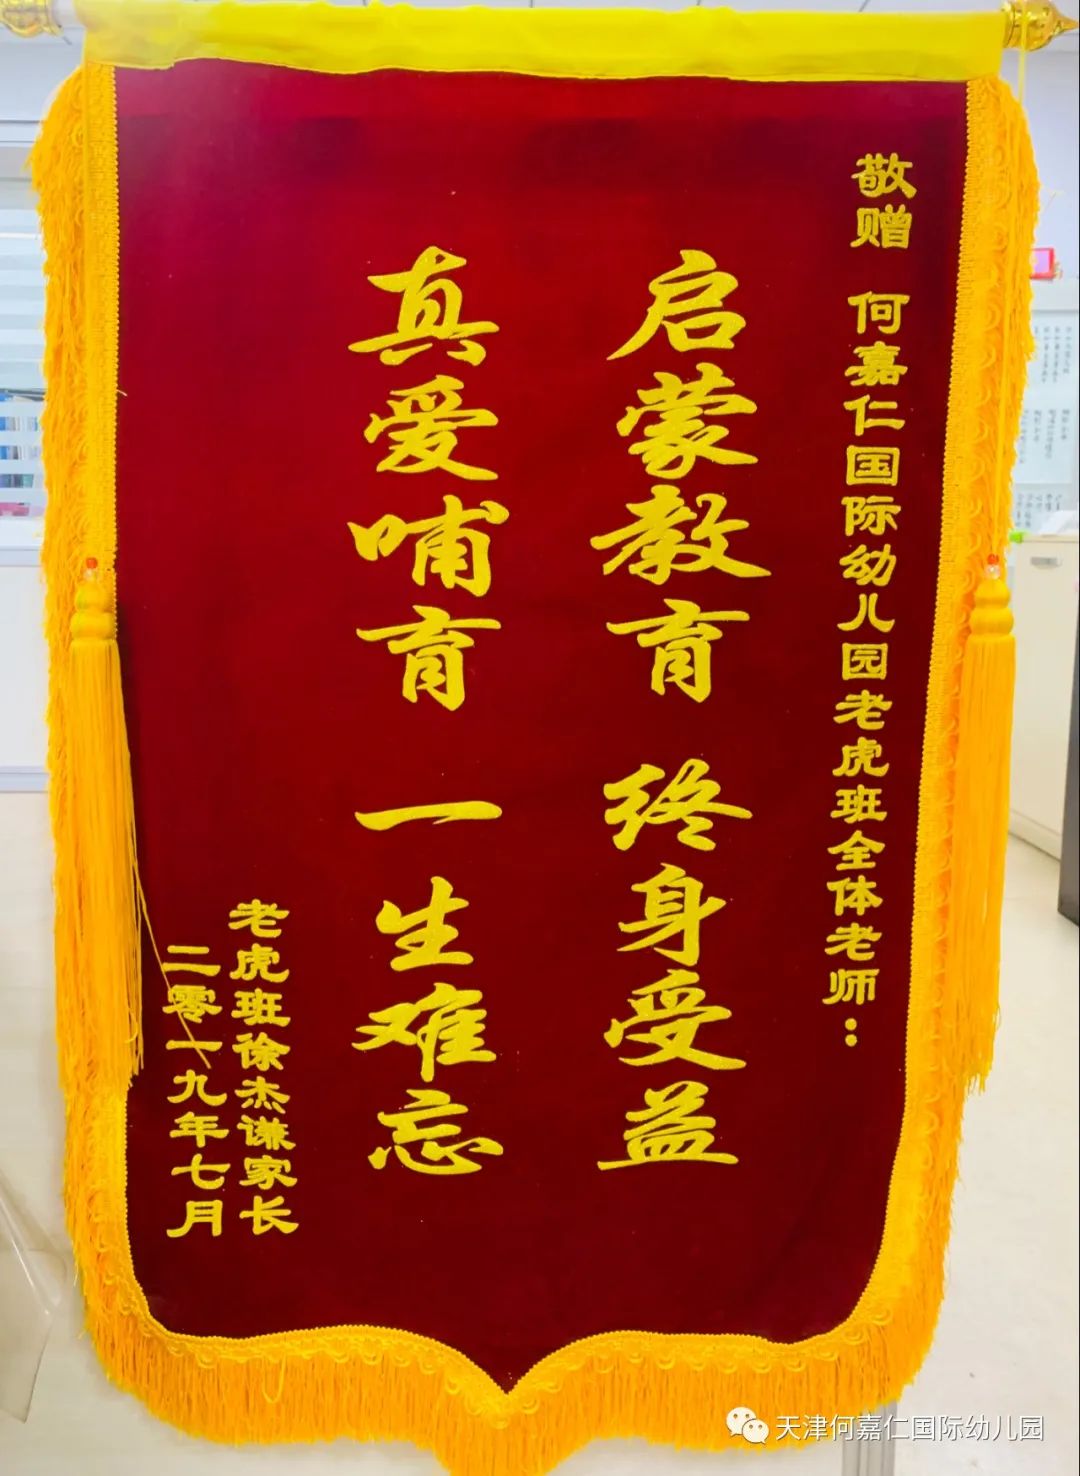 敬赠 何嘉仁国际幼儿园老虎班全体老师：
启蒙教育 终身受益
真爱哺育 一生难忘
老虎班徐杰谦家长
二零一九年七月
天津何嘉仁国际幼儿园